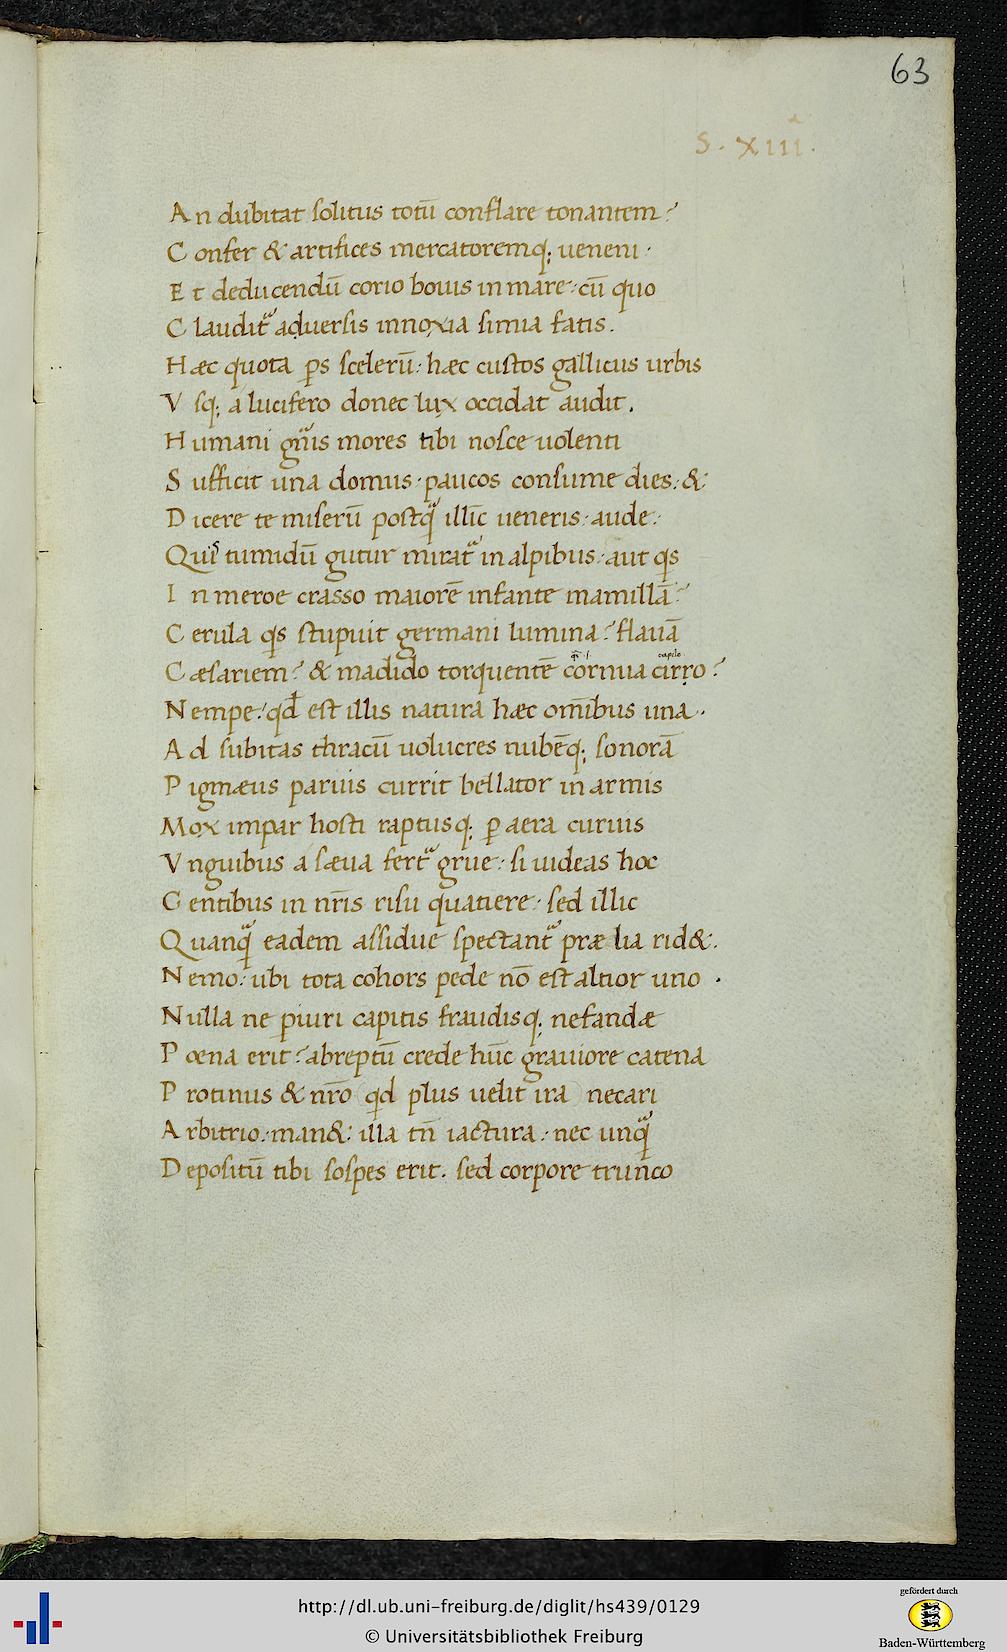 63
S. XIIIᵃ.
An dubitat solitus totū conflare tonantem?
Confer & artifices mercatoremq; ueneni·
Et deducendū corio bouis in mare: cū quo
Claudit᷑ aduersis innoxia simia fatis.
Hæc quota ꝑs scelerū: hæc custos gallicus urbis
Vsq; a lucifero donec lux occidat audit.
Humani gn̄is mores tibi nosce uolenti
Sufficit una domus· paucos consume dies: &:
Dicere te miserū postq̄ illīc ueneris: aude:
Quis tumidū gutur mirat᷑ in alpibus: aut qis
In meroe crasso maiorē infante mamillā?
Cerula qis stupuit germani lumina? flauā
qͥ .i. capilo
Cæsariem? & madido torquentē cornua cirro?
Nempe: qd̄ est illis natura hæc om̄ibus una.
Ad subitas thracū uolucres nubēq; sonorā
Pigmæus paruis currit bellator in armis
Mox impar hosti raptusq; ꝑ aera curuis
Vnguibus a sæua fert᷑ grue: si uideas hoc
Gentibus in nr̄is risu quatiere: sed illic
Quanq̄ eadem assidue spectant᷑ prælia rid&.
Nemo: ubi tota cohors pede nō est altior uno.
Nulla ne ꝑiuri capitis fraudisq; nefandæ
Poena erit? abreptū crede hūc grauiore catena
Protinus & nr̄o (qid plus uelit ira) necari
Arbitrio: man&: illa tn̄ iactura: nec unq̄
Depositū tibi sospes erit. sed corpore trunco
http://dl.ub.uni-freiburg.de/diglit/hs439/0129
© Universitätsbibliothek Freiburg
gefördert durch
Baden-Württemberg